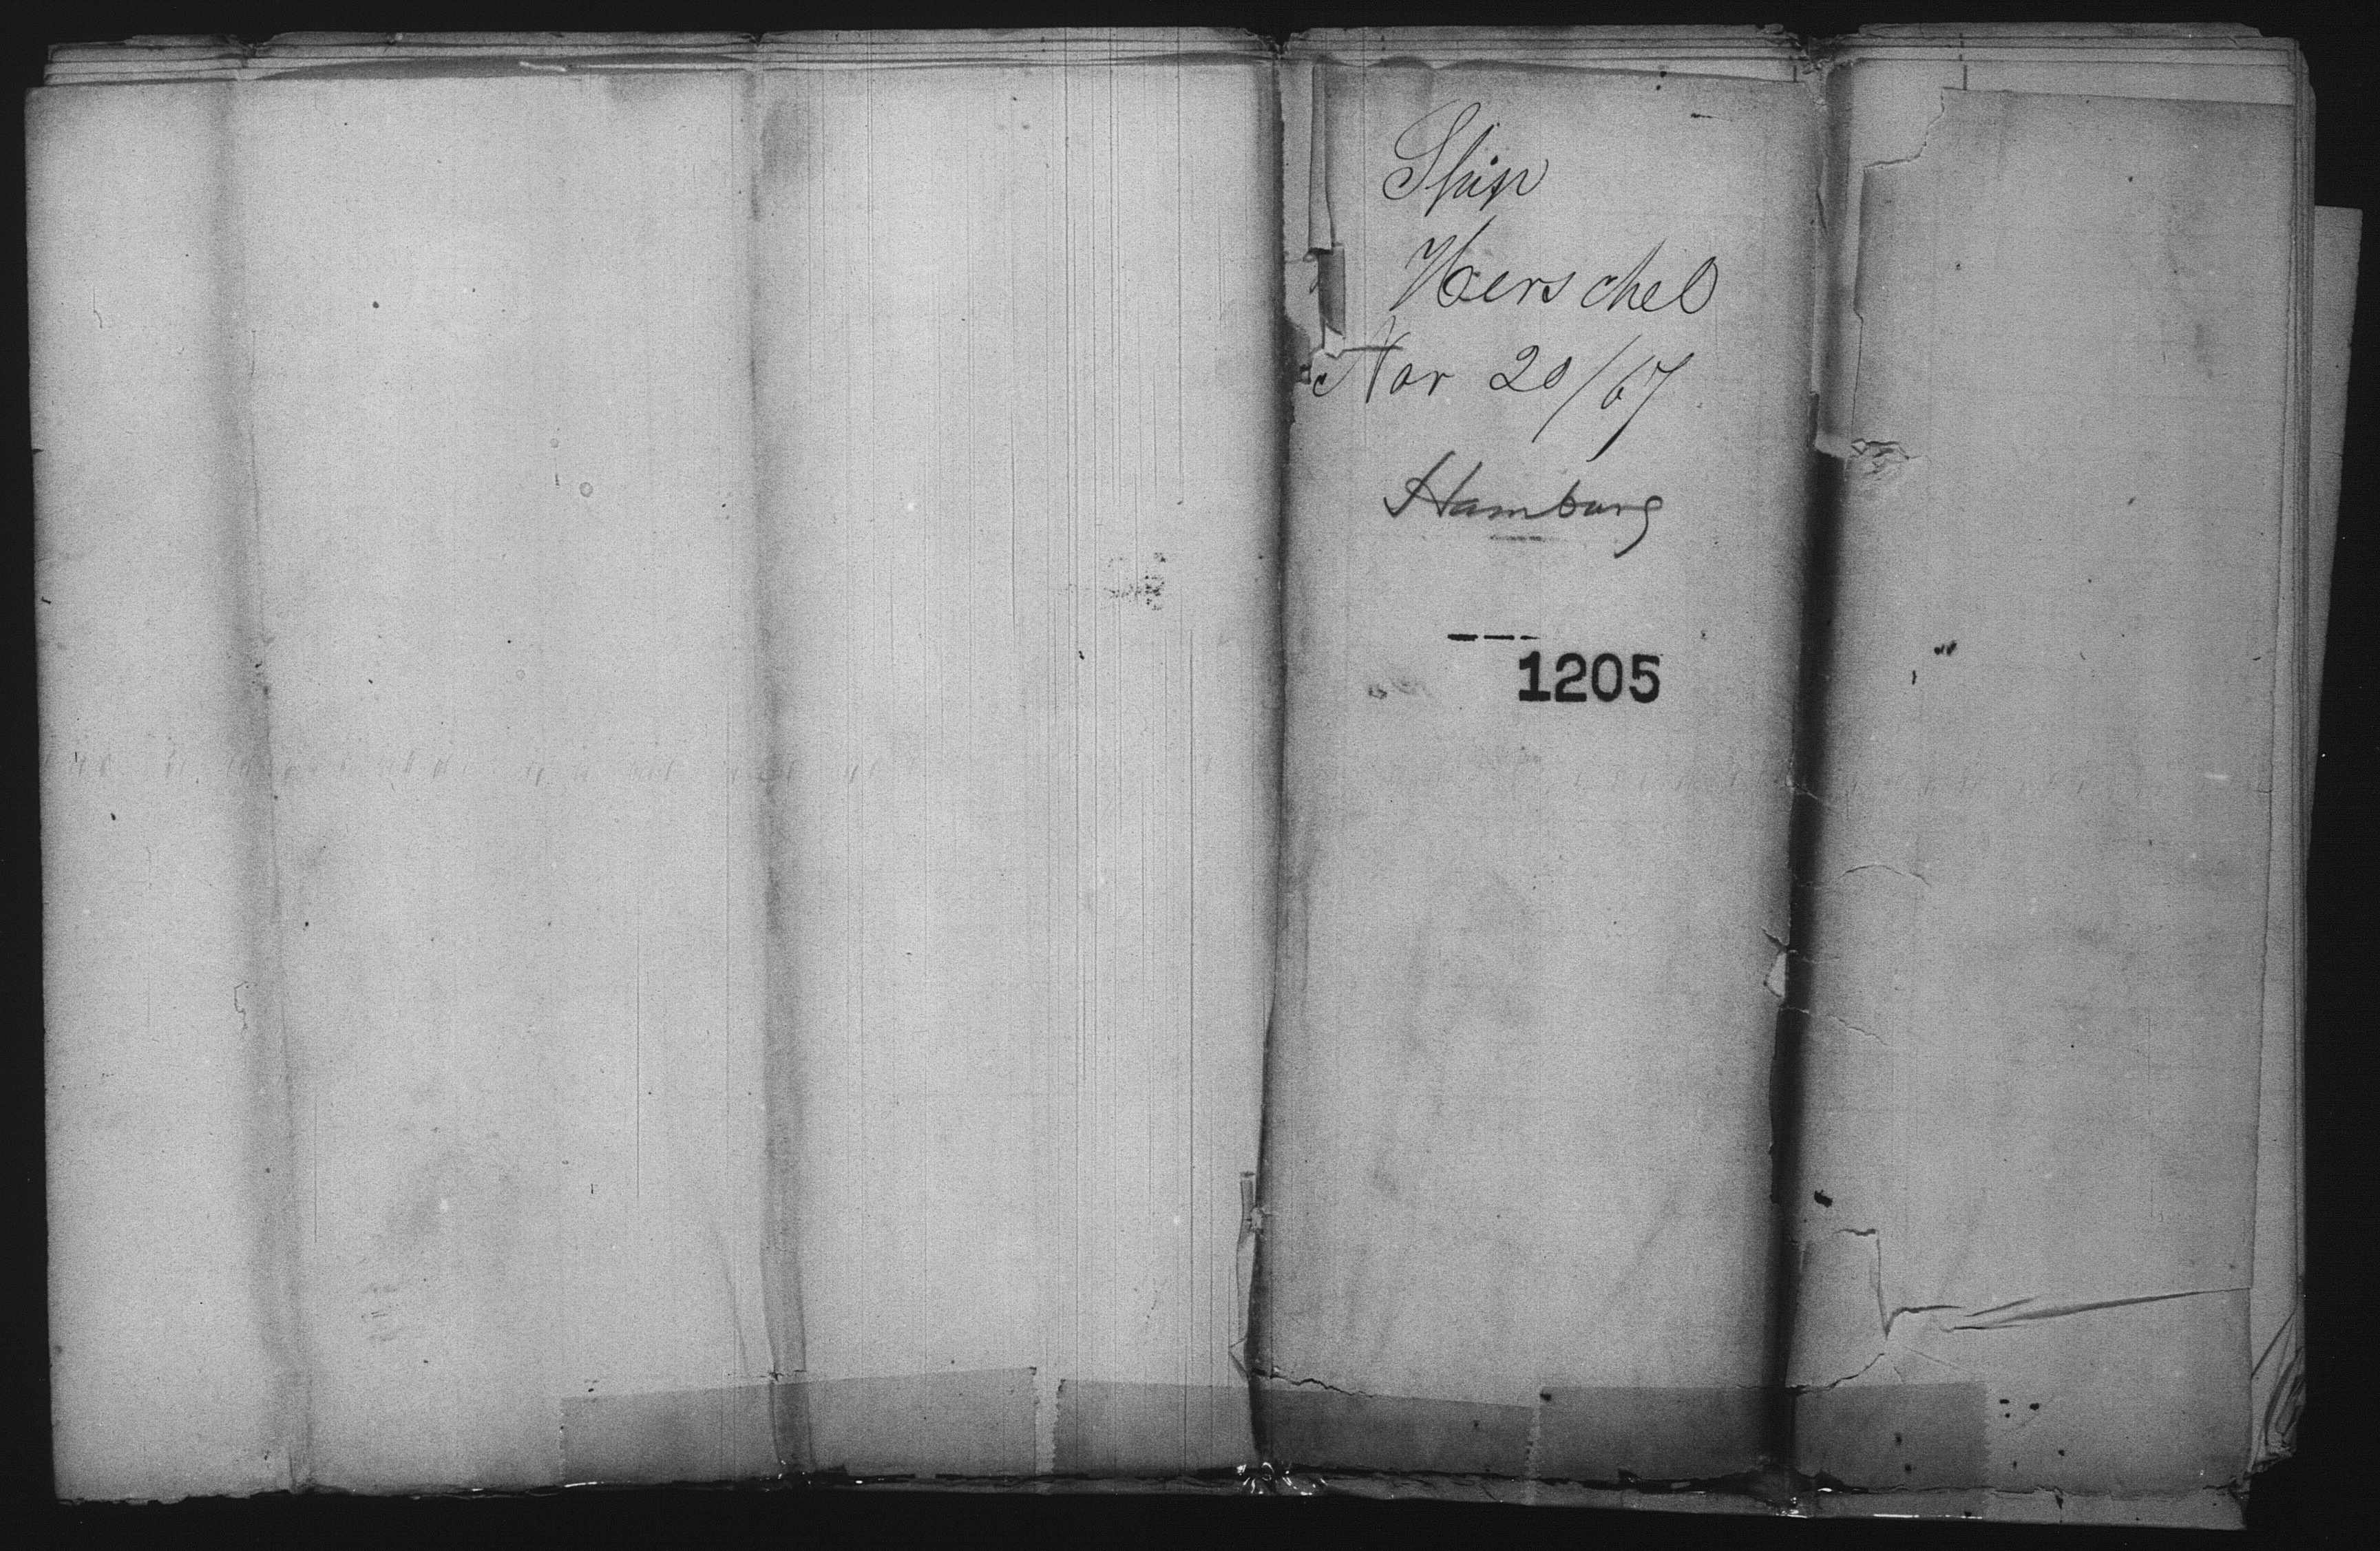 Ship
Herschel
Nov 20/67
Hamburg
1205